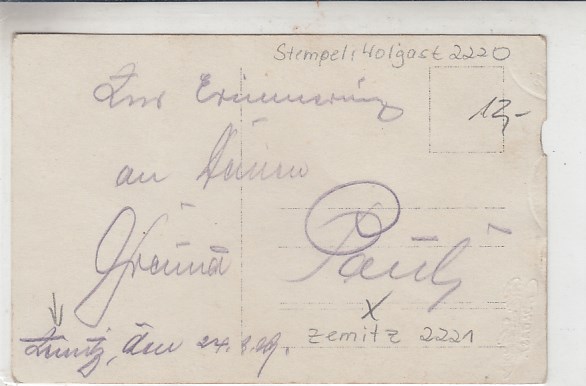 Stempel: Wolgast 2220
12,-
Zur Erinnerung
an Deinen
Freund
Pauly
Zemitz, den 24.8.29.
x
Zemitz 2221